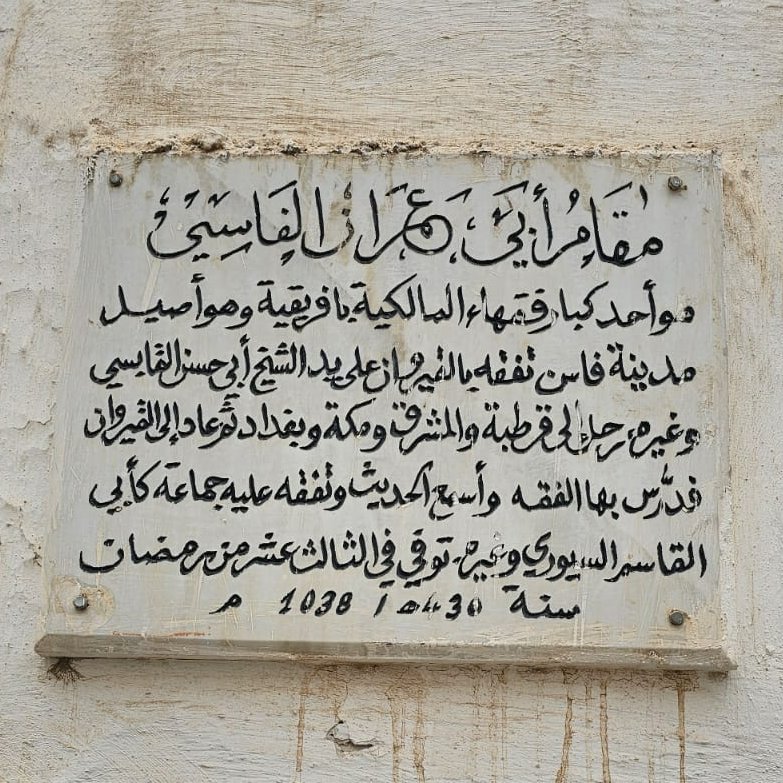 مقام أبي عمران الفاسي
هو أحد كبار فقهاء المالكية بافريقية وهو أصيل
مدينة فاس تفقه بالقيروان على يد الشيخ أبي حسن القابسي
وغيره، رحل إلى قرطبة والمشرق ومكة وبغداد ثم عاد إلى القيروان
فدرّس بها الفقه وأسمع الحديث وتفقه عليه جماعة كأبي
القاسم السيوري وغيره. توفي في الثالث عشر من رمضان
سنة 430هـ / 1038 م